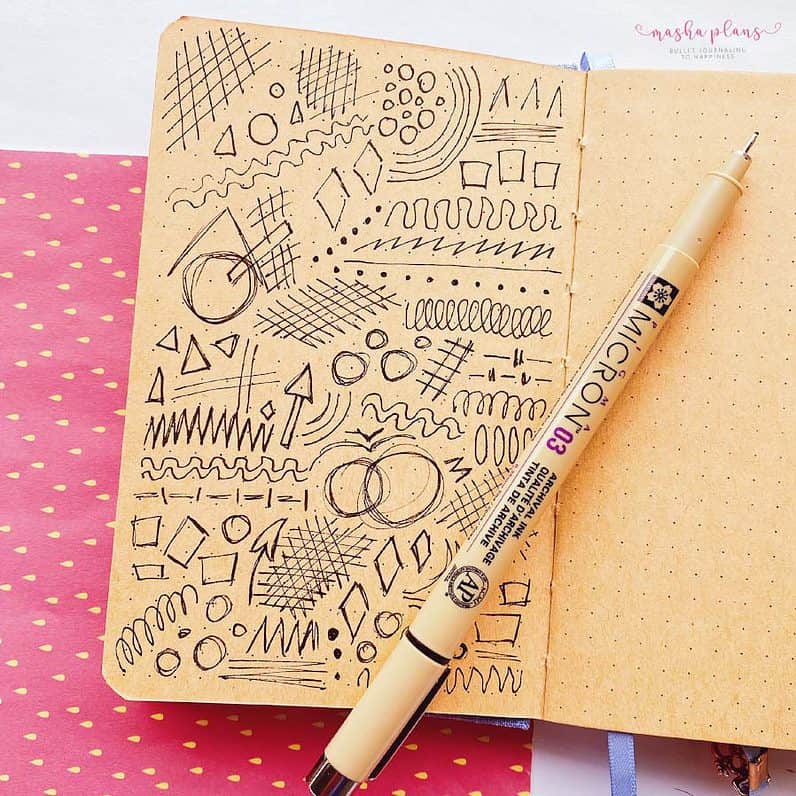 masha plans
BULLET JOURNALING
TO HAPPINESS
PIGMA
MICRON 03
ARCHIVAL INK
QUALITÉ D'ARCHIVAGE
TINTA DE ARCHIVE
AP